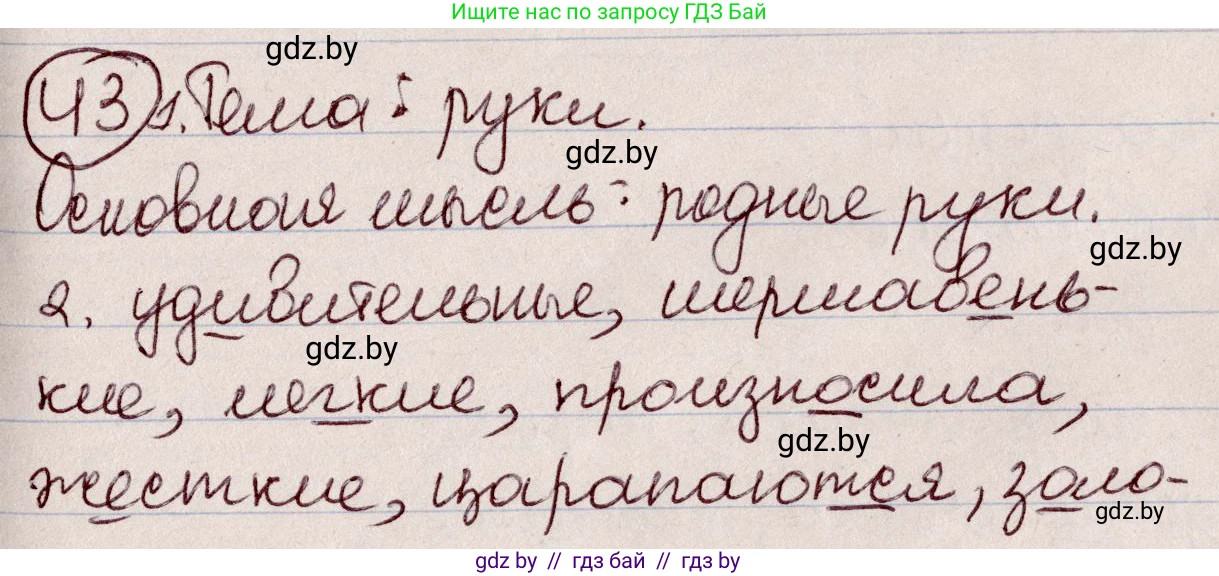 Ищите нас по запросу ГДЗ Бай
gdz.by
43 1. Тема: руки.
gdz.by
Основная мысль: родные руки.
gdz.by
2. удивительные, шершавень-
gdz.by
кие, легкие, произносила,
gdz.by
жесткие, царапаются, золо-
gdz.by
gdz by // гдз бай // гдз by